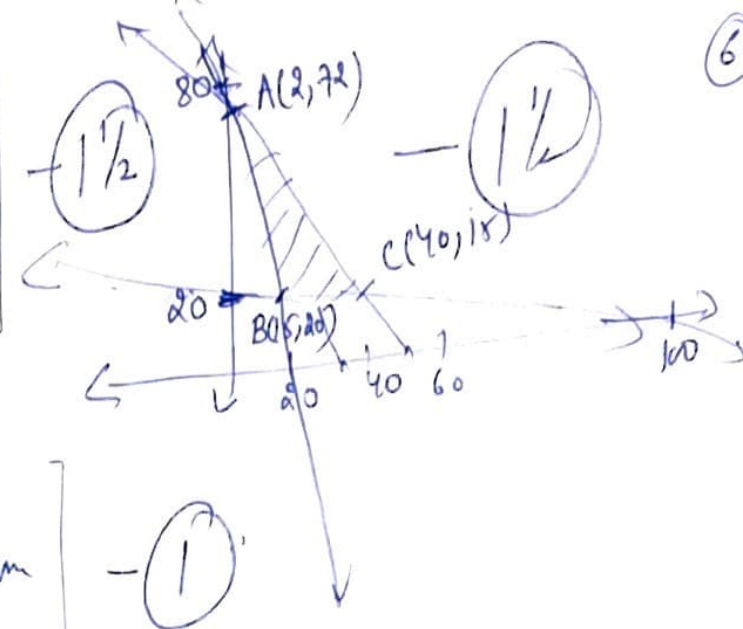 6
80 A(2,72)
- 1 1/2
- 1 1/2
C(40,15)
20
B(15,20)
100
20 40 60
- 1